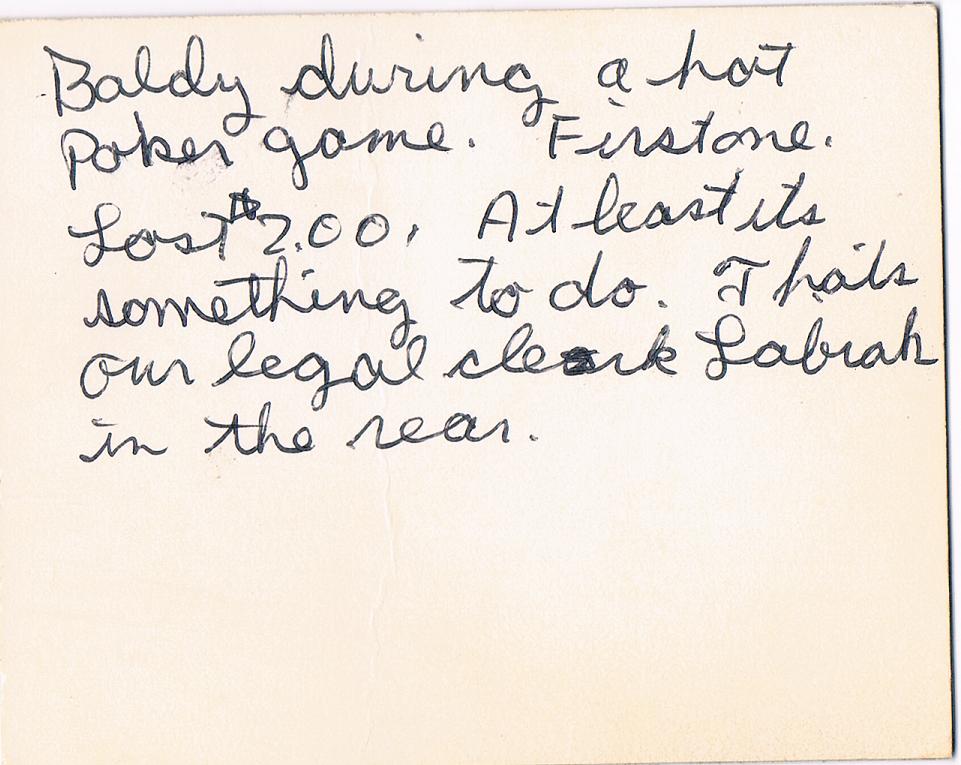 Baldy during a hot
Poker game. First one.
Lost $2.00. At least its
something to do. Thats
our legal clerk
in the rear.